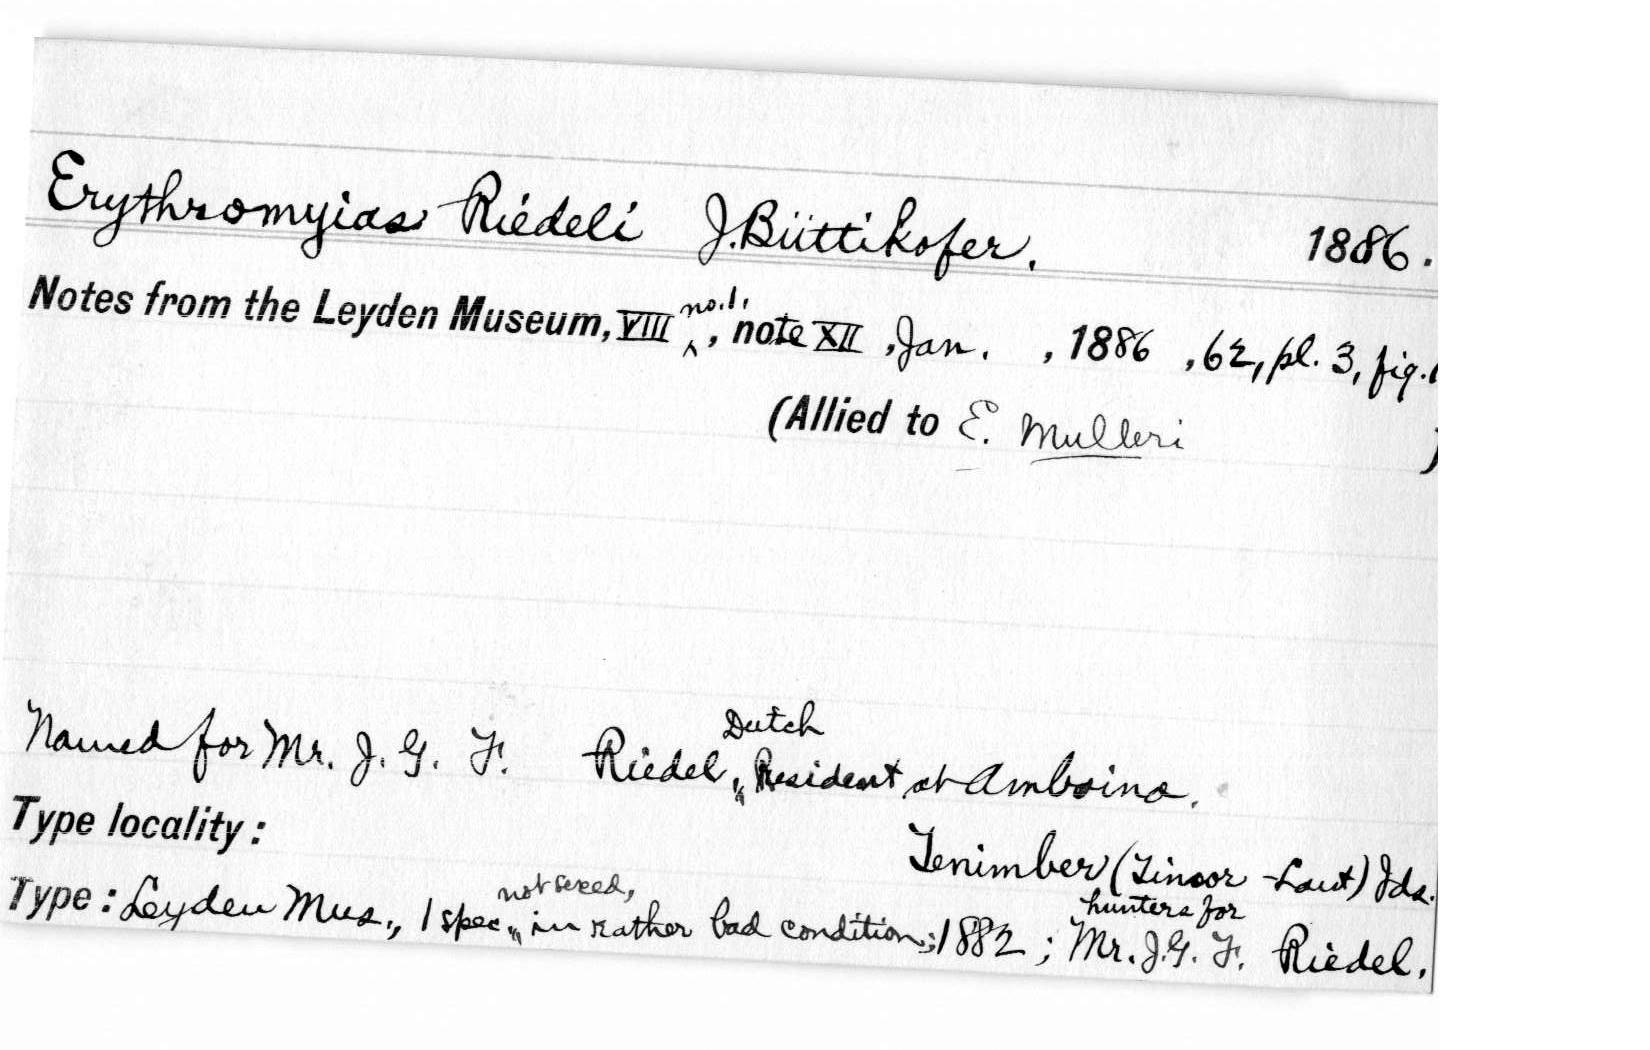 Erythromyias Riedeli J. Büttikofer. 1886.
Notes from the Leyden Museum, VIII no. 1, , note XII , Jan. , 1886 , 62, pl. 3, fig.
(Allied to E. Mulleri )
Named for Mr. J. G. F. Riedel, Dutch Resident at Amboina.
Type locality:
Tenimber (Timor-Laut) Ids.
Type: Leyden Mus., 1 spec., not sexed, in rather bad condition; 1882; hunters for Mr. J. G. F. Riedel.